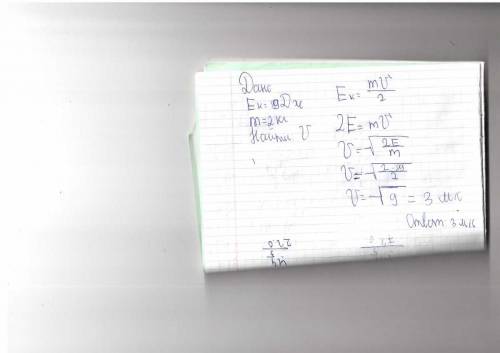 Дано
Eк = 9Дж
m=2кг
Найти V
Eк = mV²/2
2E = mV²
V = √2E/m
V = √2·9/2
V = √9 = 3 м/с
Ответ: 3 м/с